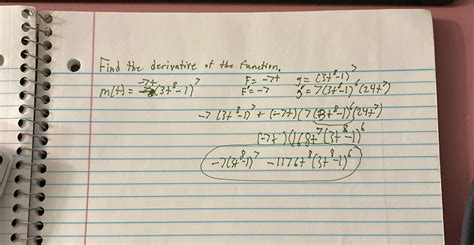 Find the derivative of the function.
m(t) = -7t(3t⁸-1)⁷ F = -7t g = (3t⁸-1)⁷
F' = -7 g' = 7(3t⁸-1)⁶(24t⁷)
-7(3t⁸-1)⁷ + (-7t)(7(3t⁸-1)⁶(24t⁷)
(-7t)(168t⁷(3t⁸-1)⁶
-7(3t⁸-1)⁷ - 1176t⁸(3t⁸-1)⁶